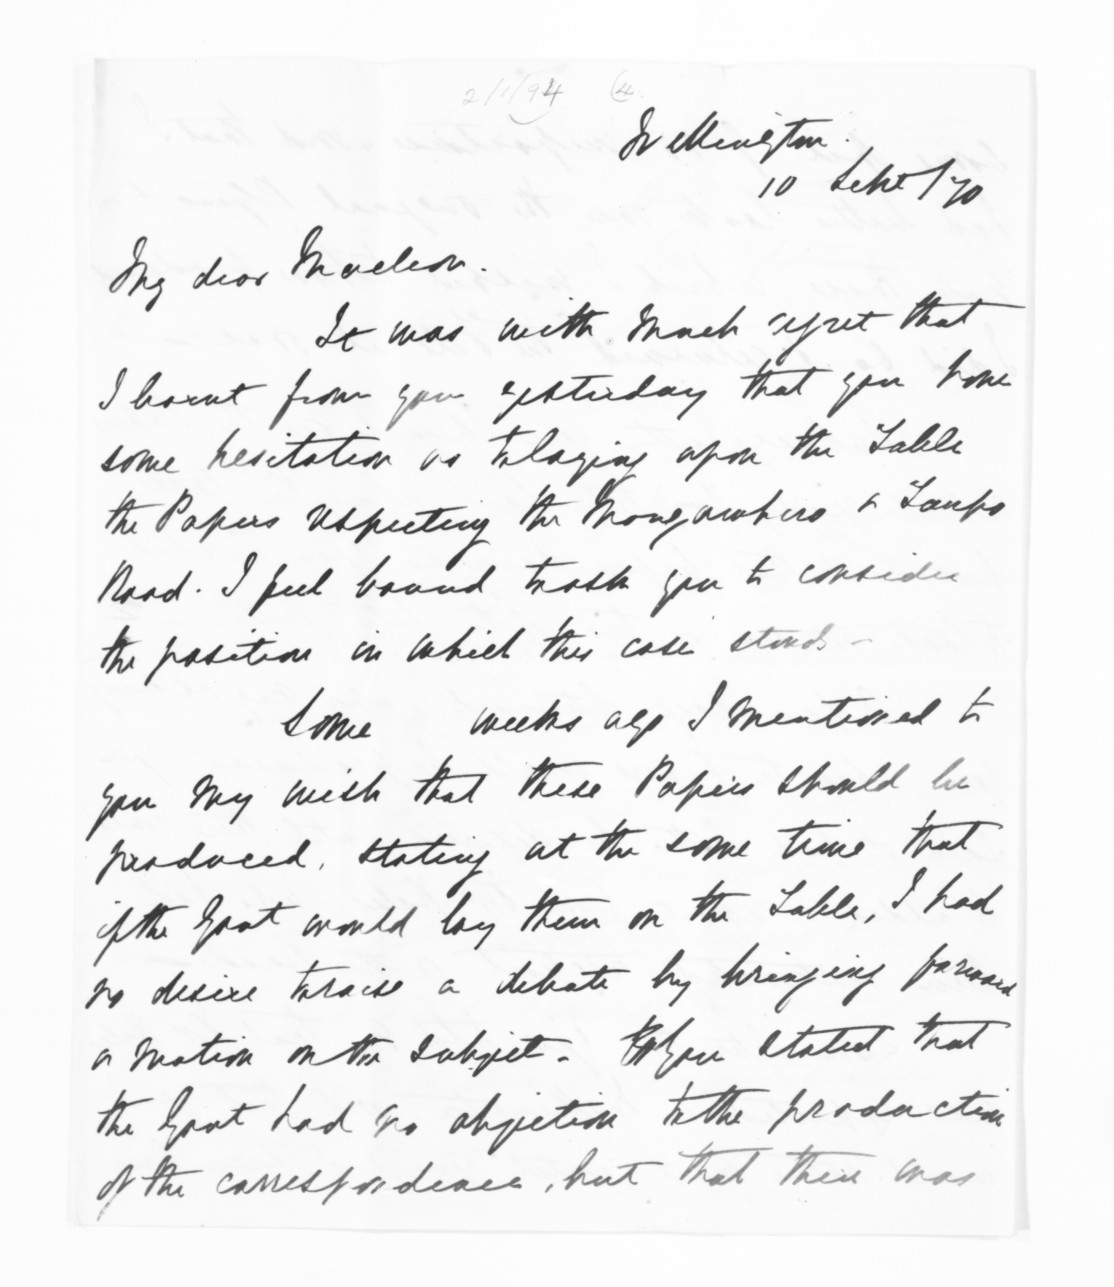 2/1/94 (4
Wellington.
10 Sept/70
My dear McLean.
It was with much regret that
I learnt from you yesterday that you have
some hesitation as to laying upon the Table
the Papers respecting the Mongawhero & Taupo
Road. I feel bound to ask you to consider
the position in which this case stands -
Some weeks ago I mentioned to
you my wish that these Papers should be
produced, stating at the same time that
if the Govt would lay them on the Table, I had
no desire to raise a debate by bringing forward
a motion on the subject. You stated that
the Govt had no objection to the production
of the correspondence, but that there was